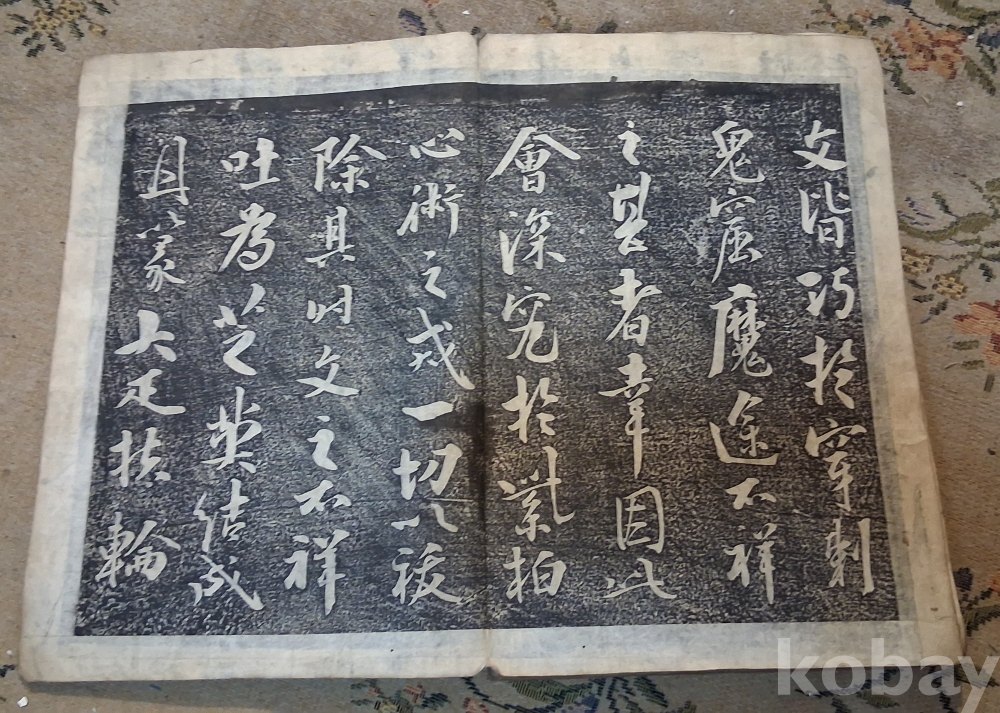 文皆巧於穿刺
鬼窟魔途不祥
之甚者幸因此
會深究於拍
心術之戒一切以祓
除其時文之不祥
吐為芝英結成
篆大疋扶輪
kobay